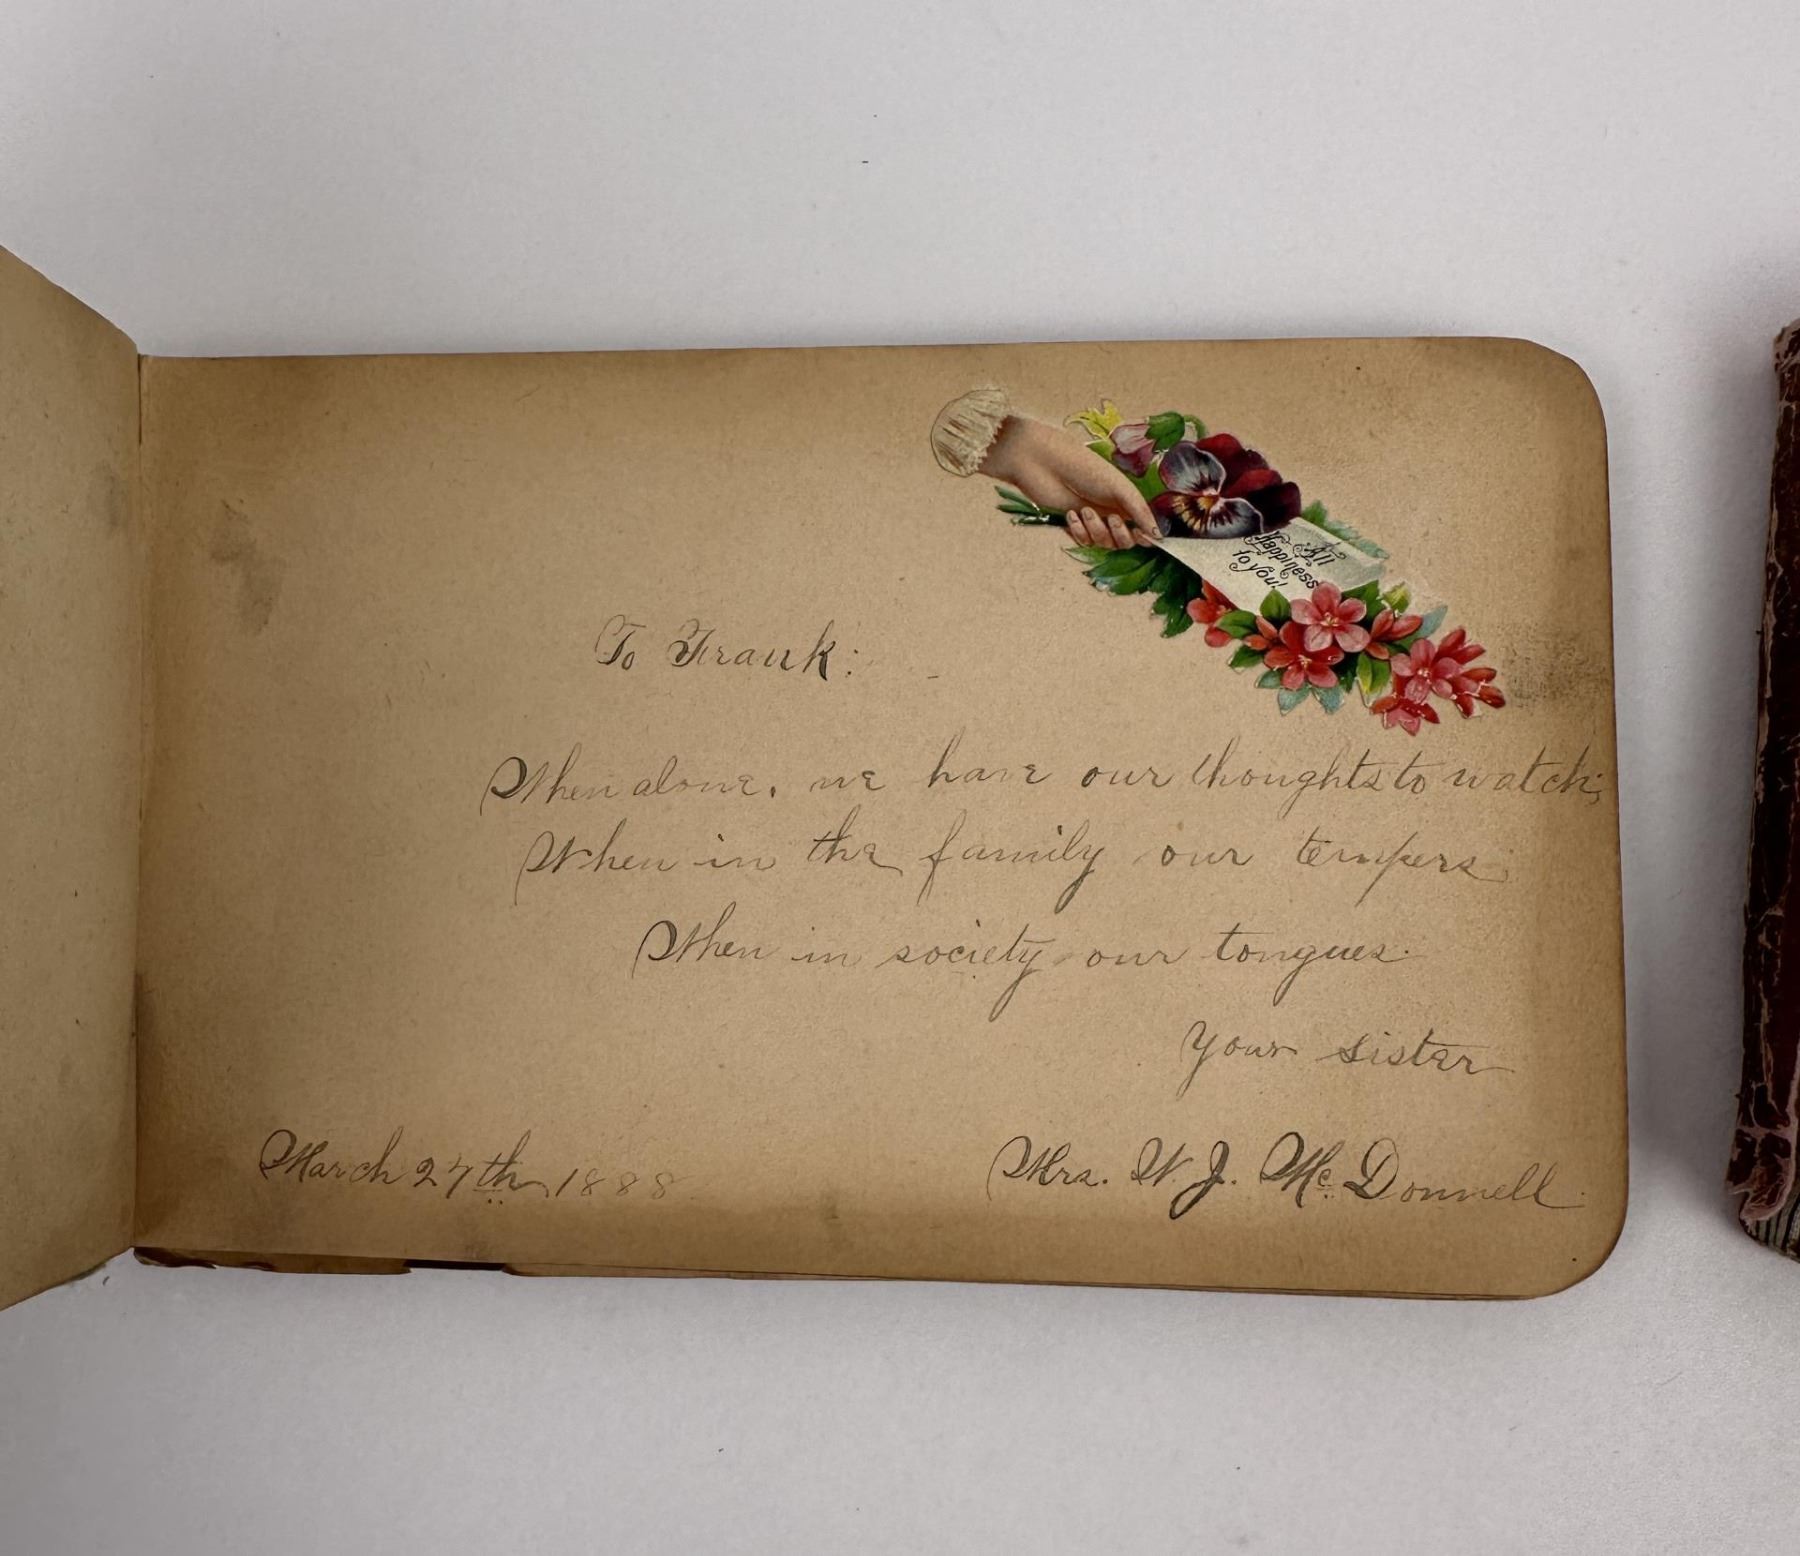 All
Happiness
to you!
To Frank:
When alone, we have our thoughts to watch;
When in the family our tempers;
When in society our tongues.
Your sister
March 27th 1888
Mrs. W. J. Mc Donnell.